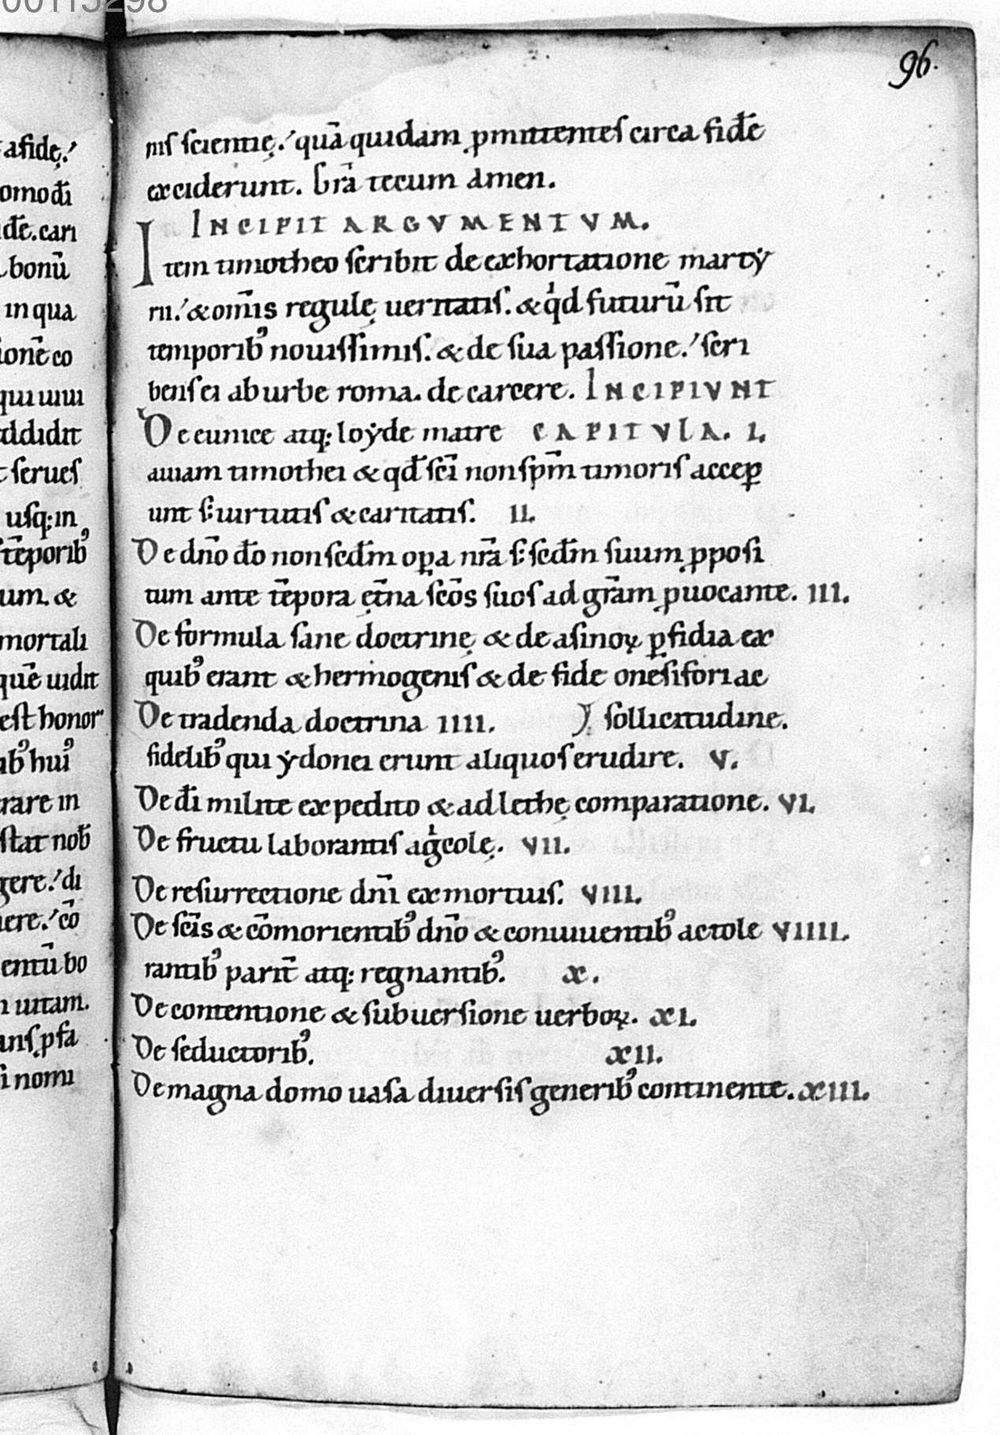 00115298
96.
a fidę.
omo dı̄
dē. cari
bonū
in qua
ionē co
qui uiui
ddidit
serues
usq; in
tēporib᾽
um. &
mortali
quē uidit
est honor
ib᾽ hui᾽
rare in
stat nob̄
gere. di
ere. cō
entū bo
uitam.
nomi
nis scientię. quā quidam ꝓmittentes circa fidē
exciderunt. Grā tecum Amen.
INCIPIT ARGVMENTVM.
Item timotheo scribit de exhortatione martẏ
rii. & om̄is regulę ueritatis. & qͥd futurū sit
temporib᾽ nouissimis. & de sua passione. scri
bens ei ab urbe roma. de carcere. INCIPIVNT
De eunice atq; loẏde matre CAPITVLA. I.
auiam timothei & qđ sc̄i non sp̄m timoris acceꝑ
unt s; uirtutis & caritatis. II.
De dn̄o dō non sedm̄ oꝑa nr̄a s; sedm̄ suum ꝓposi
tum ante tēpora ęt̄na sc̄os suos ad gr̄am ꝓuocante. III.
De formula sane doctrinę & de asinoꝝ ꝑfidia ex
quib᾽ erant & hermogenis & de fide onesifori ac
De tradenda doctrina IIII. sollicitudine.
fidelib᾽ qui ẏdonei erunt aliquos erudire. V.
De dı̄ milite expedito & ad lethę comparatione. VI.
De fructu laborantis agͥcolę. VII.
De resurrectione dn̄i ex mortuis. VIII.
De sc̄is & cōmorientib᾽ dn̄o & conuiuentib᾽ ac tole VIIII.
rantib᾽ parit̄ atq; regnantib᾽. X.
De contentione & subuersione uerboꝝ. XI.
De seductorib᾽. XII.
De magna domo uasa diuersis generib᾽ continente. XIII.